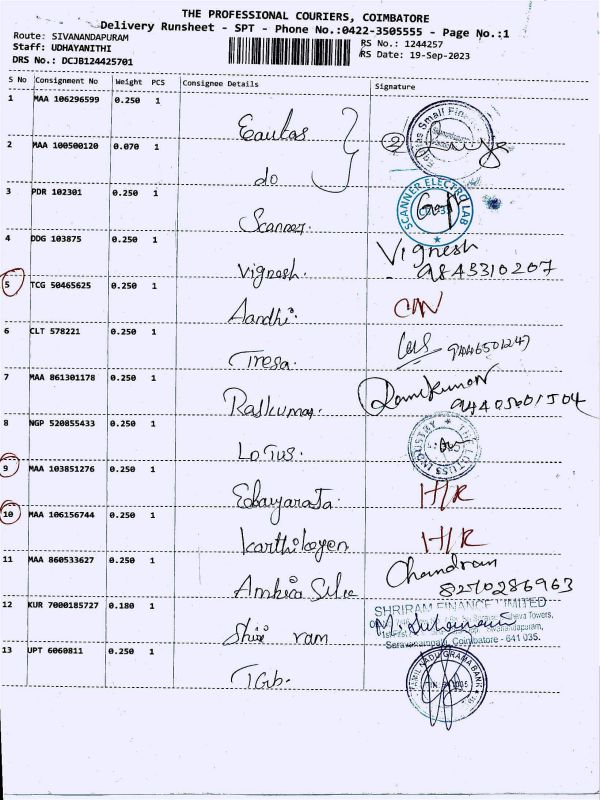 THE PROFESSIONAL COURIERS, COIMBATORE
Delivery Runsheet - SPT - Phone No.:0422-3505555 - Page No.:1
Route: SIVANANDAPURAM
Staff: UDHAYANITHI
RS No.: 1244257
DRS No.: DCJB124425701
RS Date: 19-Sep-2023
S No Consignment No Weight PCS Consignee Details Signature
1 MAA 106296599 0.250 1
2 MAA 100500120 0.070 1 do
3 PDR 102301 0.250 1 Scanner. SCANNER ELECTRO LAB
4 DDG 103875 0.250 1 Vignesh. Vignesh
9843310207
5 TCG 50465625 0.250 1 Aandhi.
6 CLT 578221 0.250 1 Tiresa.
7 MAA 861301178 0.250 1 Rajkumar.
8 NGP 520855433 0.250 1 Lotus. THE LOTUSS INDUSTRY
9 MAA 103851276 0.250 1 H/R
10 MAA 106156744 0.250 1 Karthikeyen H/R
11 MAA 860533627 0.250 1 Ambica Silie Chandran
8270286963
12 KUR 7000185727 0.180 1 Shri ram SHRIRAM FINANCE LIMITED
Coimbatore - 641 035.
13 UPT 6060811 0.250 1 TGrb. TAMIL NADU GRAMA BANK